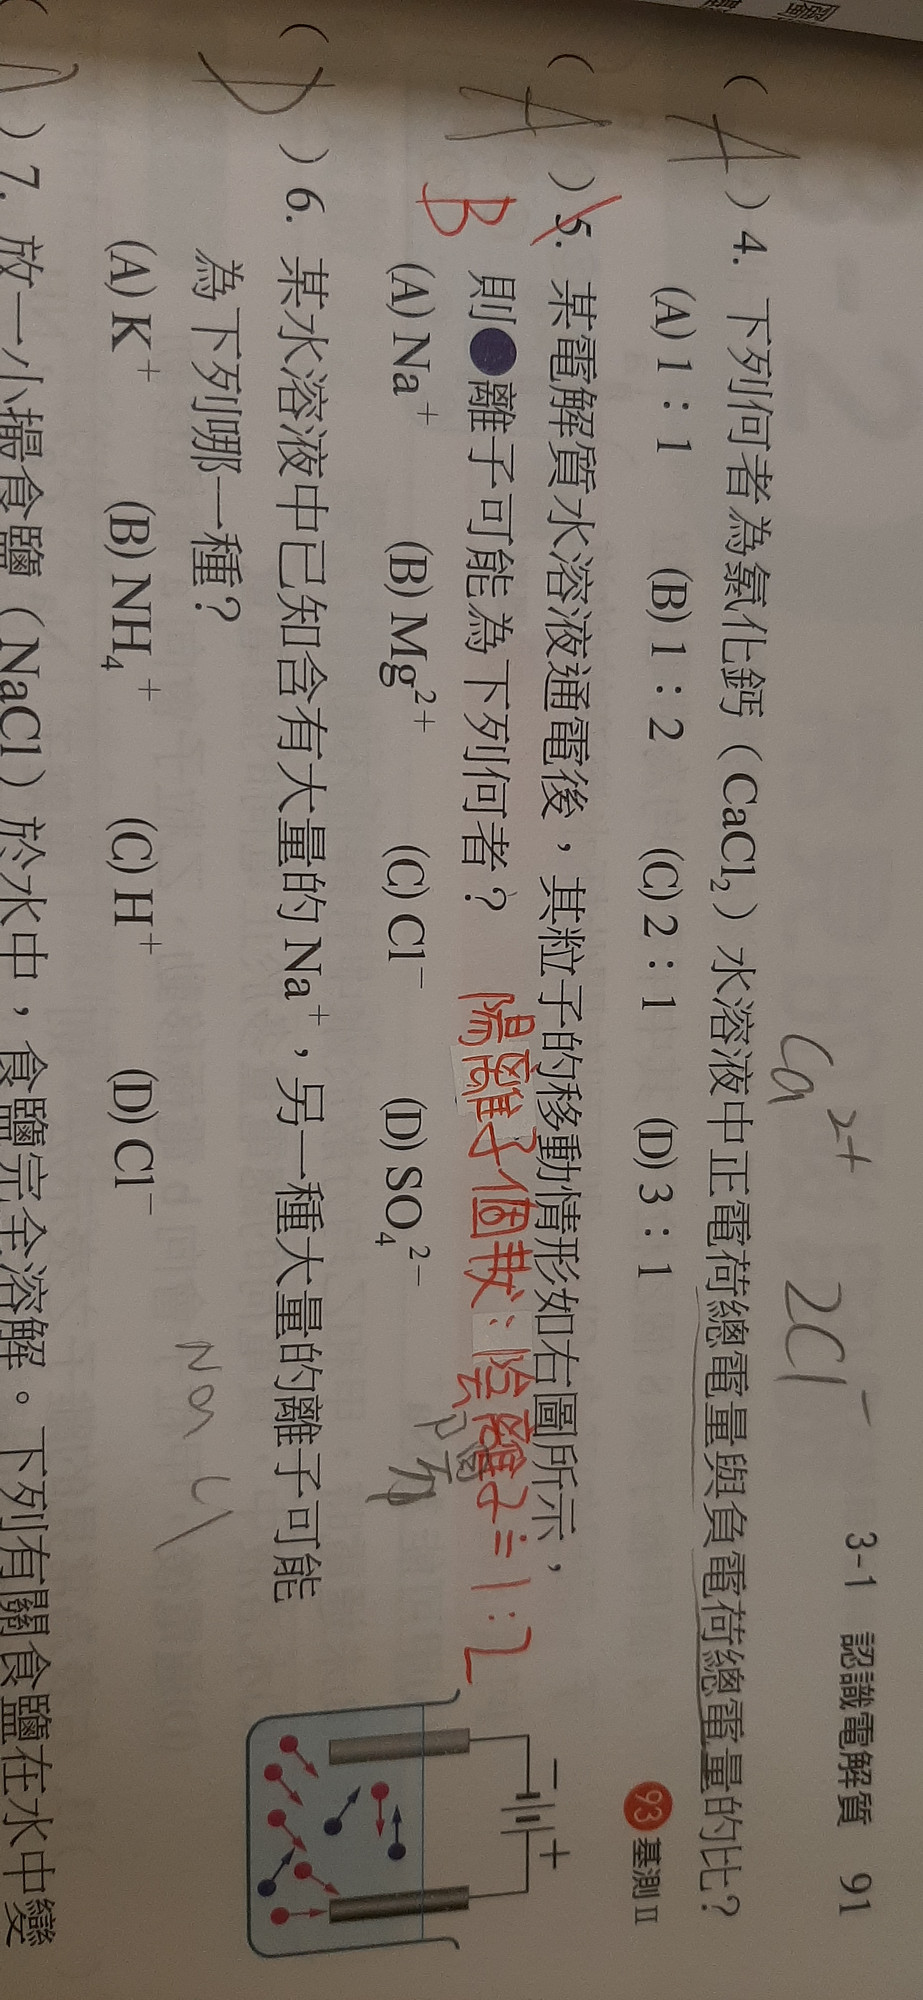 3-1 認識電解質 91
Ca²⁺ 2Cl⁻
( A ) 4. 下列何者為氯化鈣（CaCl₂）水溶液中正電荷總電量與負電荷總電量的比？
(A) 1：1 (B) 1：2 (C) 2：1 (D) 3：1
93 基測Ⅱ
( A ) 5. 某電解質水溶液通電後，其粒子的移動情形如右圖所示，
B 則●離子可能為下列何者？
陽離子個數：陰離子=1:2
(A) Na⁺ (B) Mg²⁺ (C) Cl⁻ (D) SO₄²⁻
− +
( D ) 6. 某水溶液中已知含有大量的 Na⁺，另一種大量的離子可能
為下列哪一種？
Na Cl
(A) K⁺ (B) NH₄⁺ (C) H⁺ (D) Cl⁻
) 7. 放一小撮食鹽（NaCl）於水中，食鹽完全溶解。下列有關食鹽在水中變